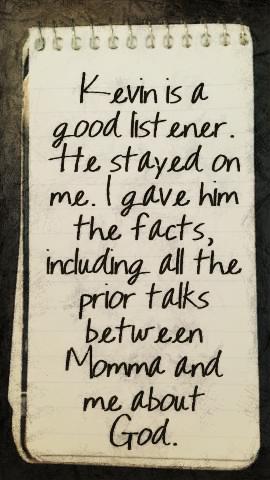 Kevin is a
good listener.
He stayed on
me. I gave him
the facts,
including all the
prior talks
between
Momma and
me about
God.